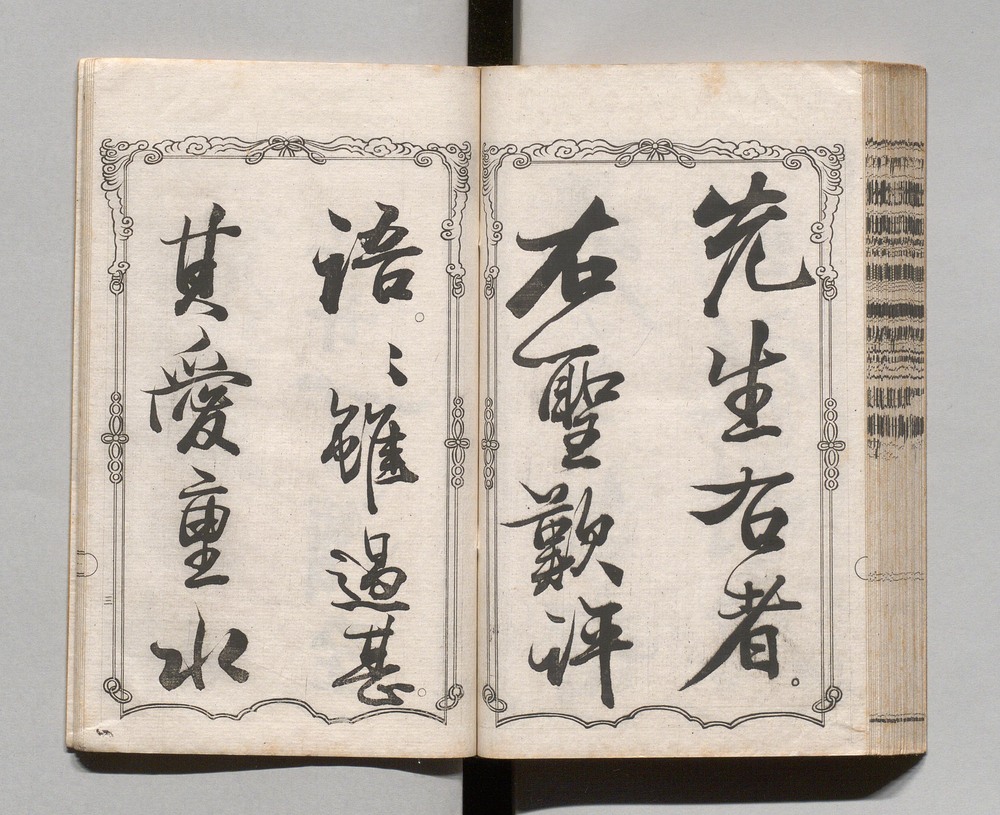 先生右者。
右聖歎評
語。〻雖過甚。
其愛重水
三